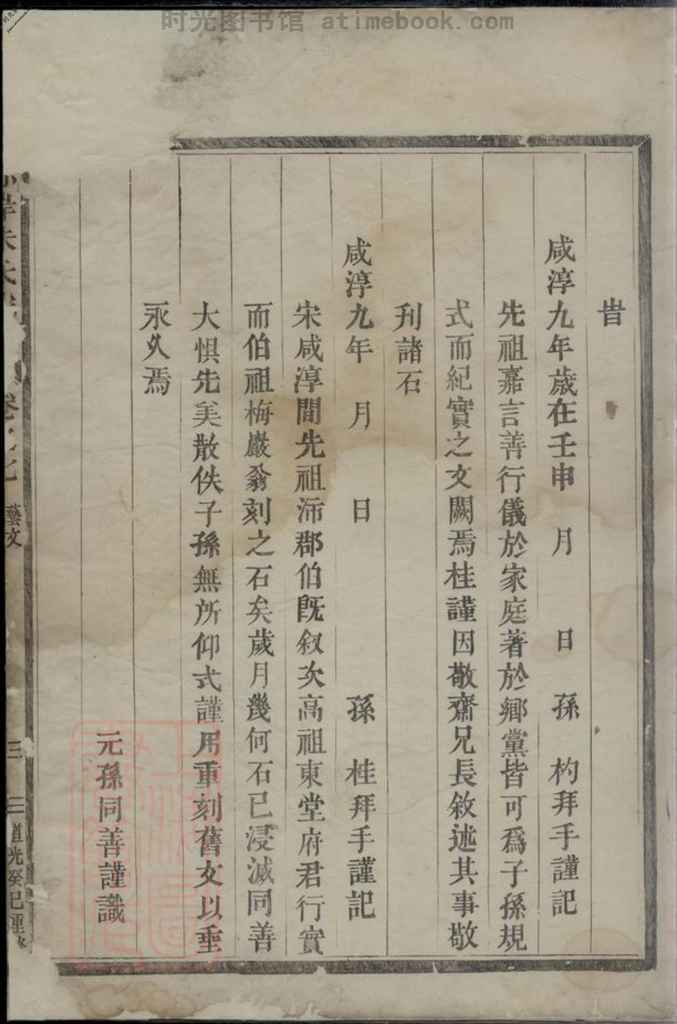 时光图书馆 atimebook.com
旹
咸淳九年歲在壬申 月 日 孫 杓拜手謹記
先祖嘉言善行儀於家庭著於鄉黨皆可爲子孫規
式而紀實之文闕焉桂謹因敬齋兄長敘述其事敬
刋諸石
咸淳九年 月 日 孫 桂拜手謹記
宋咸淳間先祖沛郡伯旣叙次高祖東堂府君行實
而伯祖梅巖翁刻之石矣歲月幾何石已浸滅同善
大惧先美散佚子孫無所仰式謹用重刻舊文以垂
永久焉
元孫同善謹識
朱氏
藝文
三 三
道光癸巳重修